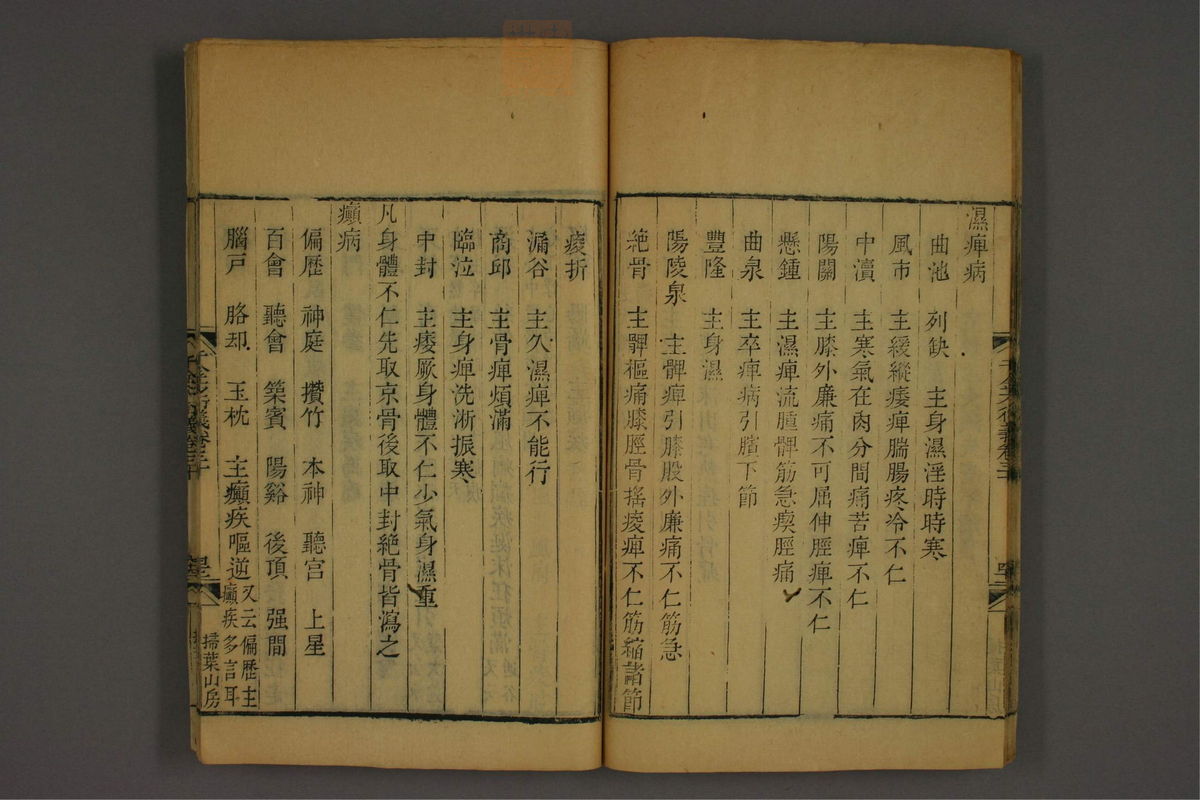 濕痺病
曲池　列缺　主身濕淫時時寒
風市　主緩縱痿痺腨腸疼冷不仁
中瀆　主寒氣在肉分間痛苦痺不仁
陽關　主膝外廉痛不可屈伸脛痺不仁
懸鍾　主濕痺流腫髀筋急瘈脛痛
曲泉　主卒痺病引臏下節
豐隆　主身濕
陽陵泉　主髀痺引膝股外廉痛不仁筋急
絶骨　主髀樞痛膝脛骨摇痠痺不仁筋縮諸節
痠折
漏谷　主久濕痺不能行
商邱　主骨痺煩滿
臨泣　主身痺洗淅振寒
中封　主痿厥身體不仁少氣身濕重
凡身體不仁先取京骨後取中封絶骨皆瀉之
癲病
偏歷　神庭　攢竹　本神　聽宫　上星
百會　聽會　築賓　陽谿　後頂　强間
腦戸　胳却　玉枕　主癲疾嘔逆又云偏歷主
癲疾多言耳
掃葉山房